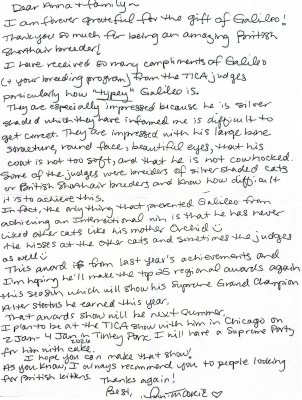 Dear Anna + family~
I am forever grateful for the gift of Galileo!
Thank you so much for being an amazing British
Shorthair breeder!
I have received so many compliments of Galileo
(+ your breeding program) from the TICA judges
particularly how "typey" Galileo is.
They are especially impressed because he is silver
shaded which they have informed me is difficult to
get correct. They are impressed with his large bone
structure, round face, beautiful eyes, that his
coat is not too soft, and that he is not cowhocked.
Some of the judges were breeders of silver shaded cats
or British Shorthair breeders and know how difficult
it is to achieve this.
In fact, the only thing that prevented Galileo from
achieving an International win is that he has never
liked other cats like his mother Orchid
He hisses at the other cats and sometimes the judges
as well
This award is from last year's achievements and
I'm hoping he'll make the top 25 regional awards again
this season which will show his Supreme Grand Champion
Alter status he earned this year.
That awards show will be next summer.
I plan to be at the TICA show with him in Chicago on
2 Jan - 4 Jan 2026 in Tinley Park. I will have a Supreme Party
for him with cake.
I hope you can make that show!
As you know, I always recommend you to people looking
for British kittens. Thanks again!
Best, ♡